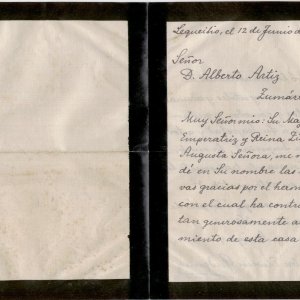 Lequeitio, el 12 de Junio d
Señor
D. Alberto Artiz
Zumár
Muy Señor mio: Su Maj
Emperatriz y Reina Zi
Augusta Señora, me
dé en Su nombre las
vas gracias por el herm
con el cual ha contri
tan generosamente a
miento de esta casa